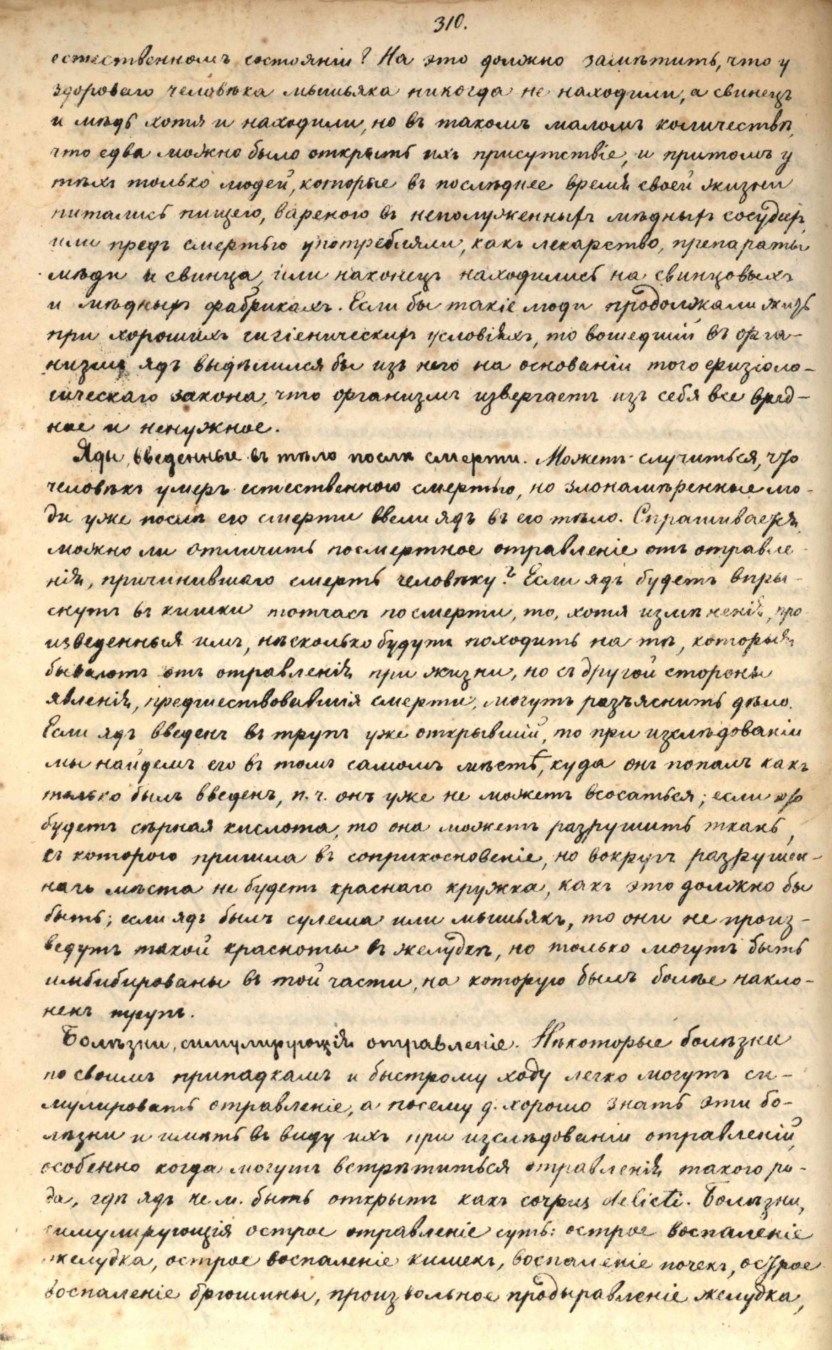 310.
естественномъ состоянiи? На это должно замѣтить, что у
здороваго человѣка мышьяка никогда не находили, а свинецъ
и мѣдь хотя и находили, но въ такомъ маломъ количествѣ,
что едва можно было открыть ихъ присутствiе, и притомъ у
тѣхъ только людей, которые въ послѣднее время своей жизни
питались пищею, вареною въ неполуженныхъ мѣдныхъ сосудахъ,
или предъ смертью употребляли, какъ лекарство, препараты
мѣди и свинца, или наконецъ находились на свинцовыхъ
и мѣдныхъ фабрикахъ. Если бы такiе люди продолжали жизнь
при хорошихъ гигiеническихъ условiяхъ, то вошедшiй въ орга-
низмъ ядъ выдѣлился бы изъ него на основанiи того физiоло-
гическаго закона, что организмъ извергаетъ изъ себя все вред-
ное и ненужное.
Яды, введенные въ тѣло послѣ смерти. Можетъ случиться, что
человѣкъ умеръ естественною смертью, но злонамѣренные лю-
ди уже послѣ его смерти ввели ядъ въ его тѣло. Спрашивается,
можно ли отличить посмертное отравленiе отъ отравле-
нiя, причинившаго смерть человѣку? Если ядъ будетъ впры-
снутъ въ кишки тотчасъ по смерти, то, хотя измѣненiя, про-
изведенныя имъ, нѣсколько будутъ походить на тѣ, которыя
бываютъ отъ отравленiя при жизни, но съ другой стороны
явленiя, предшествовавшiя смерти, могутъ разъяснить дѣло.
Если ядъ введенъ въ трупъ уже открывшiй, то при изслѣдованiи
мы найдемъ его въ томъ самомъ мѣстѣ, куда онъ попалъ какъ
только былъ введенъ, п. ч. онъ уже не можетъ всосаться; если это
будетъ сѣрная кислота, то она можетъ разрушить ткань,
съ которою пришла въ соприкосновенiе, но вокругъ разрушен-
наго мѣста не будетъ краснаго кружка, какъ это должно бы
быть; если ядъ былъ сулема или мышьякъ, то они не произ-
ведутъ такой красноты въ желудкѣ, но только могутъ быть
имбибированы въ той части, на которую былъ болѣе накло-
ненъ трупъ.
Болѣзни, симулирующiя отравленiе. Нѣкоторые болѣзни
по своимъ припадкамъ и быстрому ходу легко могутъ си-
мулировать отравленiе, а посему д. хорошо знать эти бо-
лѣзни и имѣть въ виду ихъ при изслѣдованiи отравленiй,
особенно когда могутъ встрѣтиться отравленiя такого ро-
да, гдѣ ядъ не м. быть открытъ какъ corpus delicti. Болѣзни,
симулирующiя острое отравленiе суть: острое воспаленiе
желудка, острое воспаленiе кишекъ, воспаленiе почекъ, острое
воспаленiе брюшины, произвольное продыравленiе желудка,